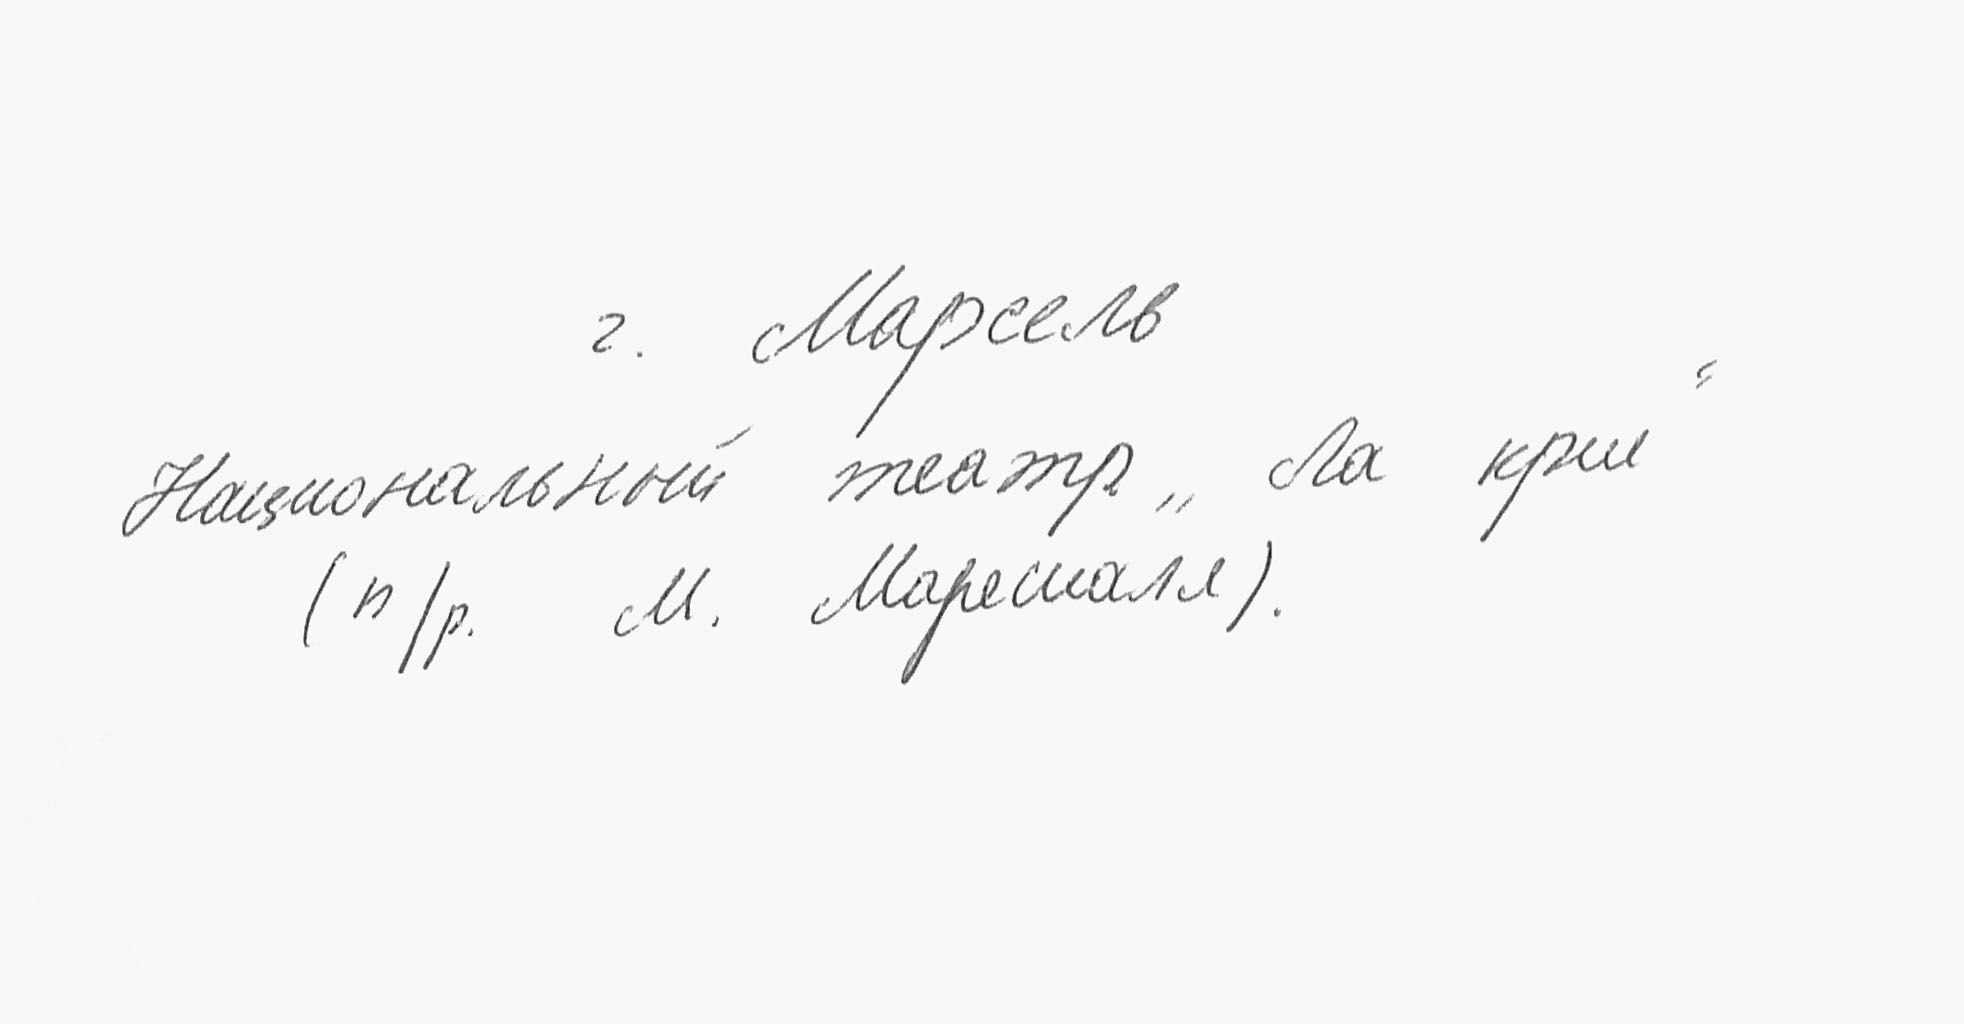 г. Марсель
Национальный театр „Ла крие“
(п/р. М. Марешаля).